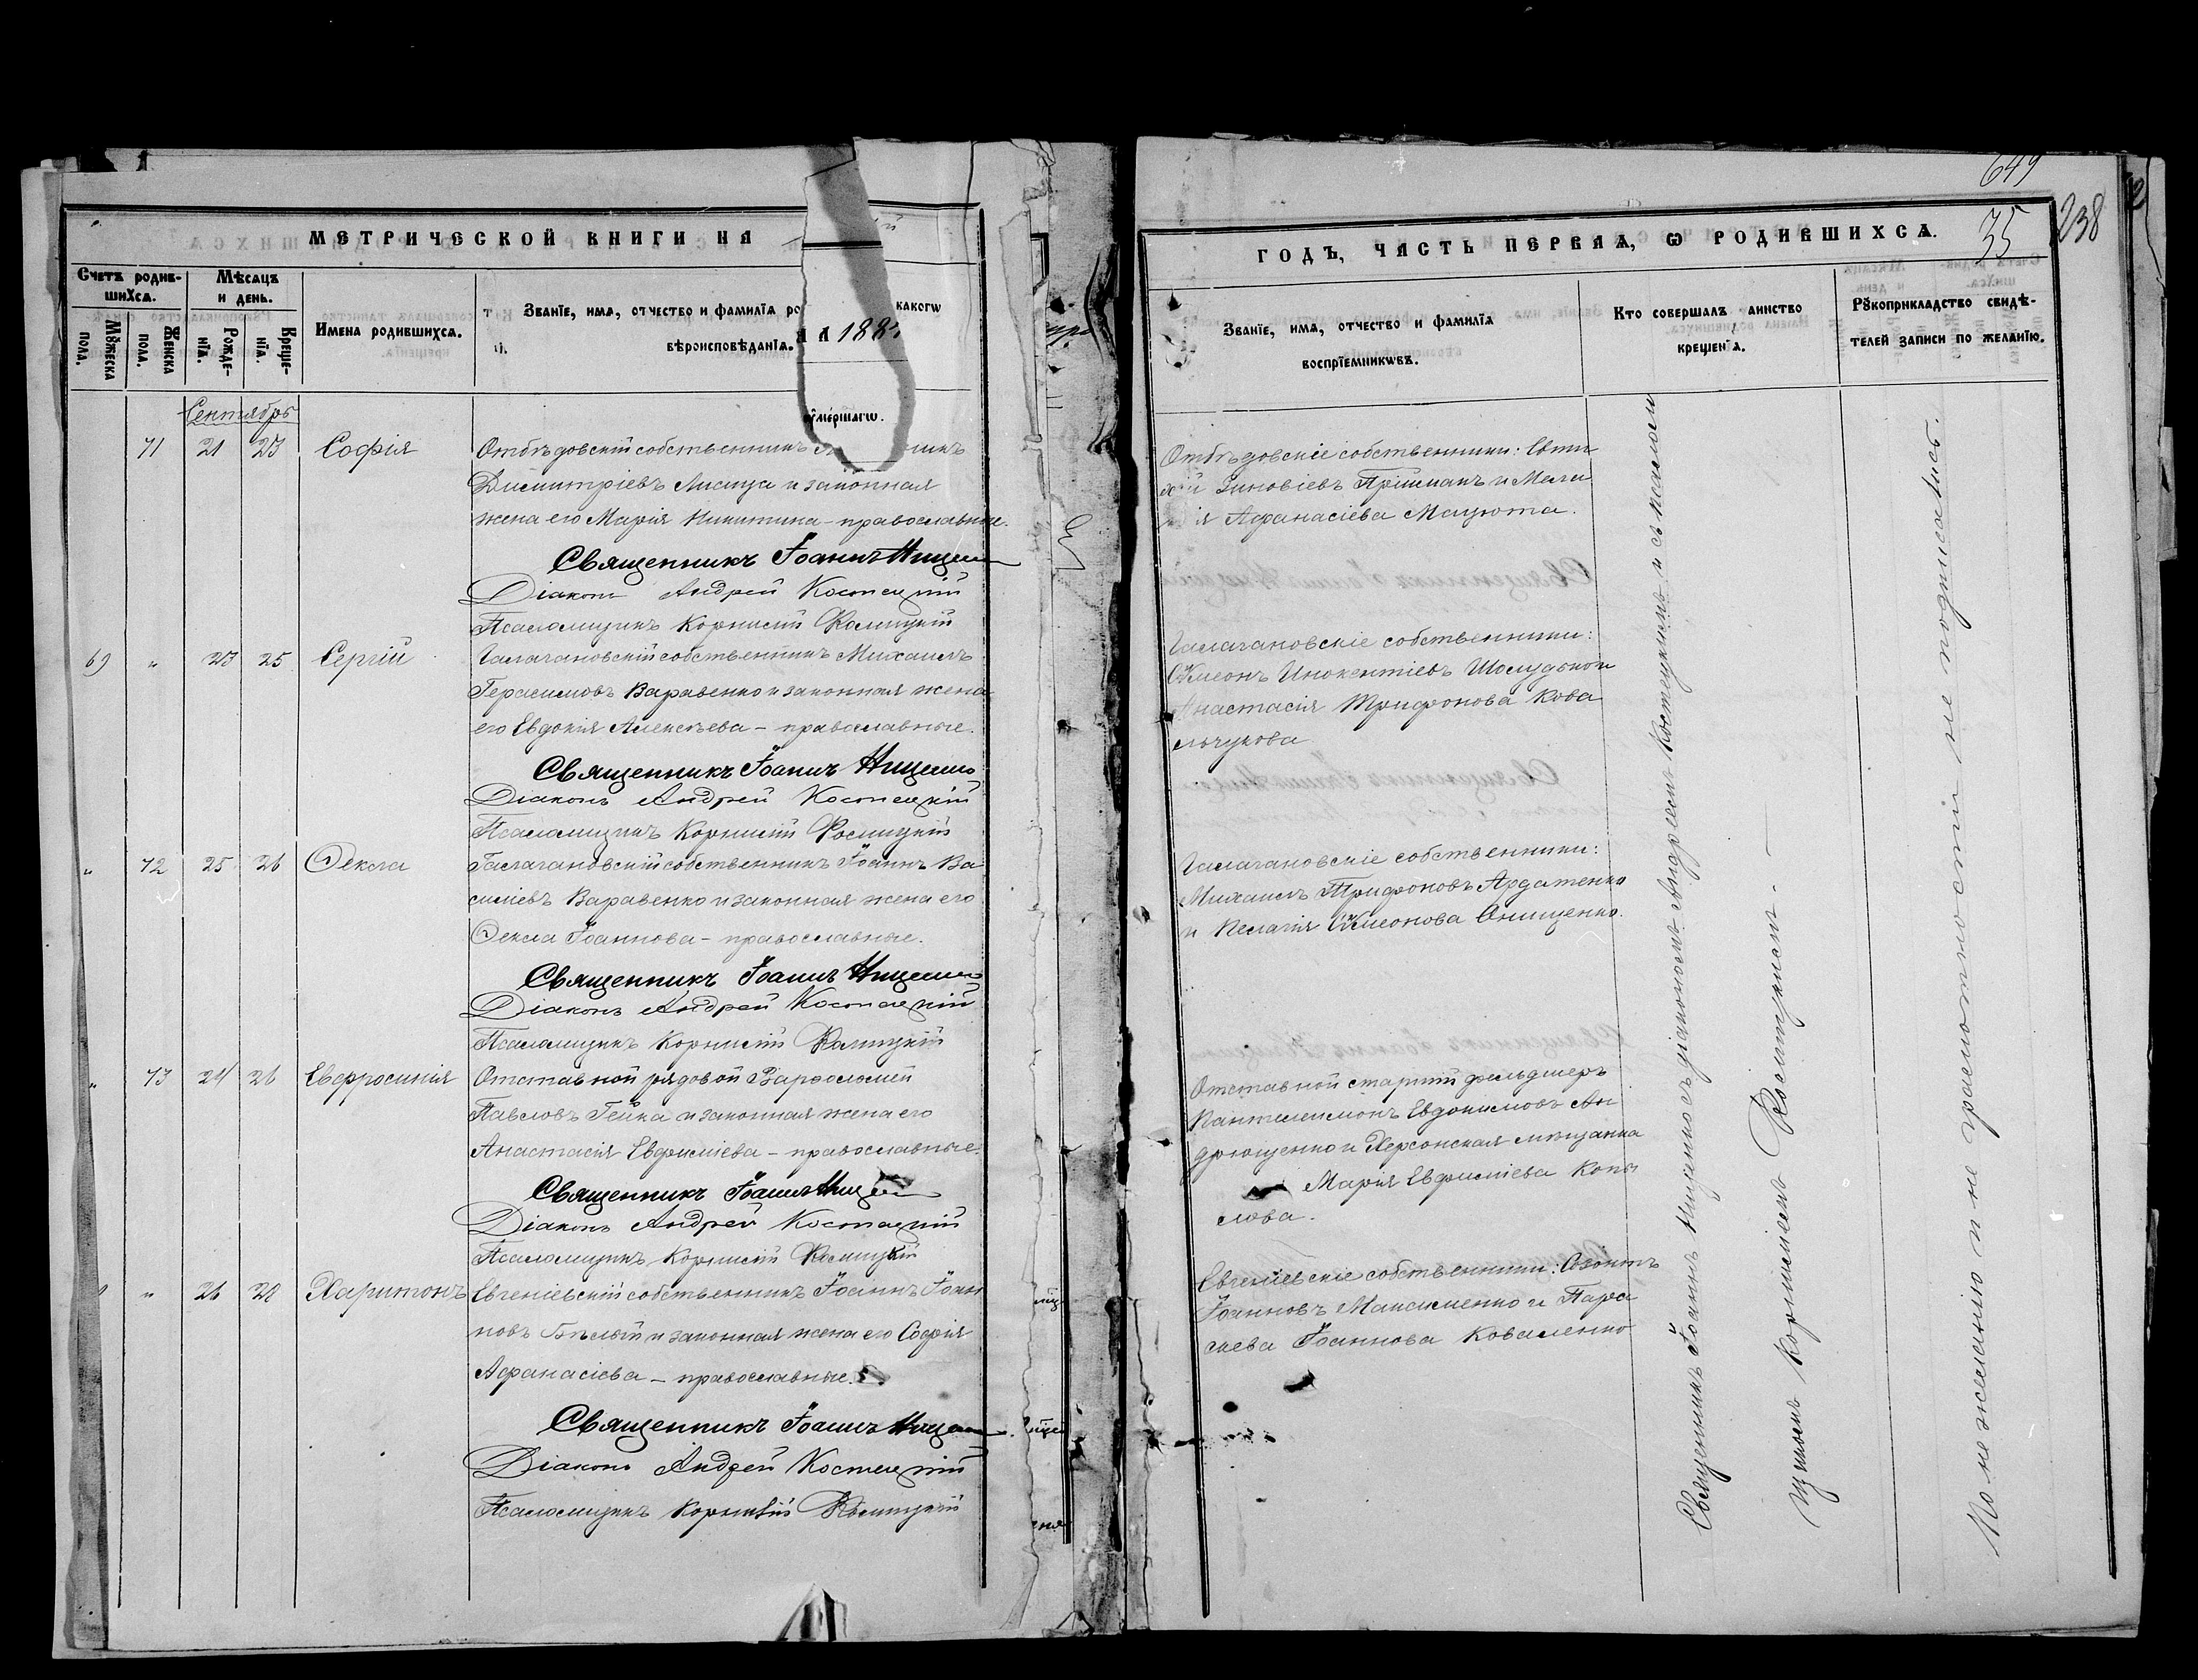 649
МЕТРИЧЕСКОЙ КНИГИ НА
ГОДЪ, ЧАСТЬ ПЕРВАЯ, Ѡ РОДИВШИХСѦ.
35
238
Счетъ родив-
шихсѧ.
Мѣсѧцъ
и день.
Мꙋжеска
пола.
Женска
пола.
Рожде-
нїѧ.
Креще-
нїѧ.
Имена родившихсѧ.
Званїе, имѧ, отчество и фамилїѧ ро
какогѡ
вѣроисповѣданїѧ.
188
ᲂумершагѡ.
Званїе, имѧ, отчество и фамилїѧ
воспрїемникѡвъ.
Кто совершалъ аинство
крещенїѧ.
Рꙋкоприкладство свидѣ-
телей записи по желанїю.
Сентябрь
71 21 23 Софія
Отбѣдовскій собственникъ
Димитріевъ Лисица и законная
жена его Марія Никитина – православные.
Священникъ Іоаннъ Нищенко
Діаконъ Андрей Костецкій
Псаломщикъ Корнилій Рослицкій
Отбѣдовскіе собственники: Евти
хій Зиновіевъ Пришманъ и Мела
ія Афанасіева Мацюта.
69 " 23 25 Сергій
Галагановскій собственникъ Михаилъ
Герасимовъ Варавенко и законная жена
его Евдокія Алексѣева – православные.
Священникъ Іоаннъ Нищенко
Діаконъ Андрей Костецкій
Псаломщикъ Корнилій Рослицкій
Галагановскіе собственники:
Сѵмеонъ Инокентіевъ Шолудько и
Анастасія Трифонова Кова
льчукова
" 72 25 26 Ѳекла
Галагановскій собственникъ Іоаннъ Ва
силіевъ Варавенко и законная жена его
Ѳекла Іоаннова – православные.
Священникъ Іоаннъ Нищенко
Діаконъ Андрей Костецкій
Псаломщикъ Корнилій Рослицкій
Галагановскіе собственники:
Михаилъ Трифоновъ Ардатенко
и Пелагія Сѵмеонова Онищенко.
" 73 24 26 Евфросинія
Отставной рядовой Варфоломей
Павловъ Гейка и законная жена его
Анастасія Евфиміева – православные.
Священникъ Іоаннъ Нищенко
Діаконъ Андрей Костецкій
Псаломщикъ Корнилій Рослицкій
Отставной старшій фельдшеръ
Пантелеимонъ Евдокимовъ Ан
дрющенко и Херсонская мѣщанка
Марія Евфиміева Копы
лова.
" 26 28 Харитонъ
Евгеніевскій собственникъ Іоаннъ Іоан
новъ Бѣлый и законная жена его Софія
Афанасіева – православные.
Священникъ Іоаннъ Нищенко
Діаконъ Андрей Костецкій
Псаломщикъ Корнилій Рослицкій
Евгеніевскіе собственники: Созонтъ
Іоанновъ Максименко и Пара
скева Іоаннова Коваленко
Священникъ Іоаннъ Нищенко съ діакономъ Андреемъ Костецкимъ и съ псалом
щикомъ Корниліемъ Рослицкимъ. —
По нежеланію и не грамотности не подписались.